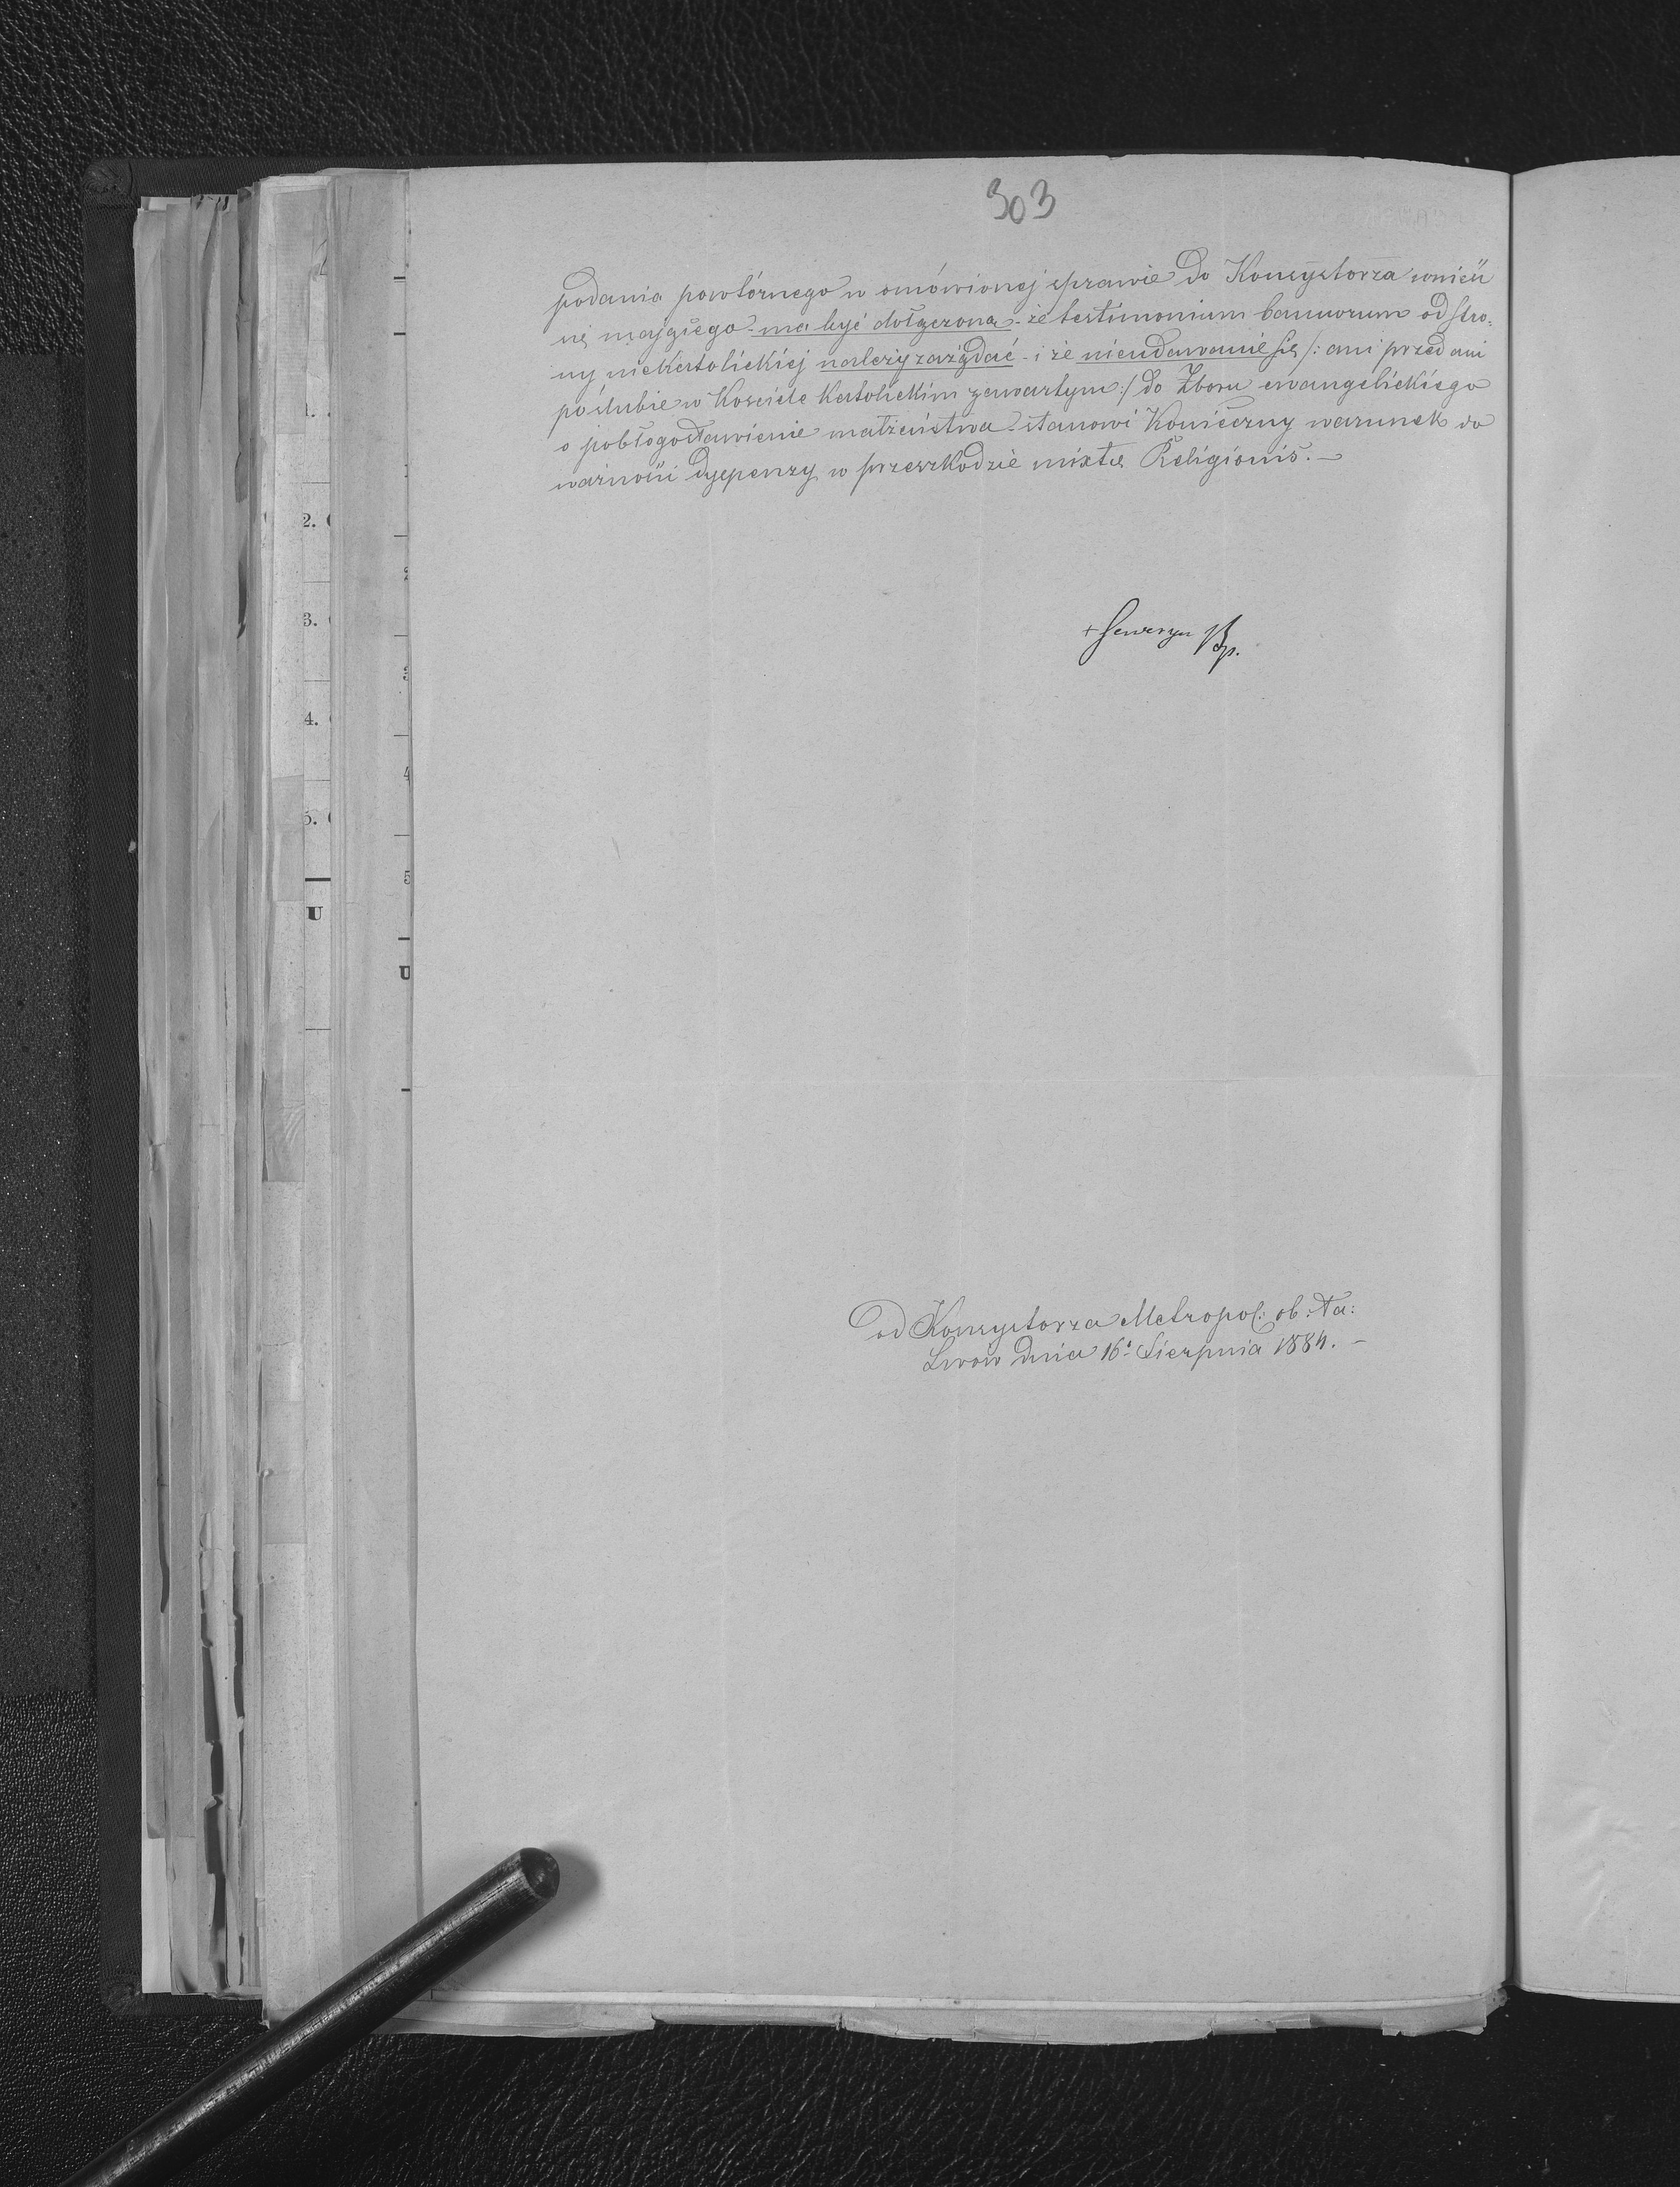 303
podania powtórnego w omówionej sprawie do Konsystorza wnieść
się mającego - ma być dołączona - że testimonium bannorum od stro-
ny niekatolickiej należy zażądać - i że nieudawanie się /: ani przed ani
po ślubie w Kościele Katolickim zawartym :/ do Zboru ewangelickiego
o pobłogosławienie małżeństwa - stanowi Konieczny warunek do
ważności dyspenzy w przeszkodzie mixtae Religionis. —
+ Seweryn Bp.
Od Konsystorza Metropol: ob: ła:
Lwów dnia 16. Sierpnia 1884. —
1.
2.
3.
4.
5.
U
2
3
4
5
U